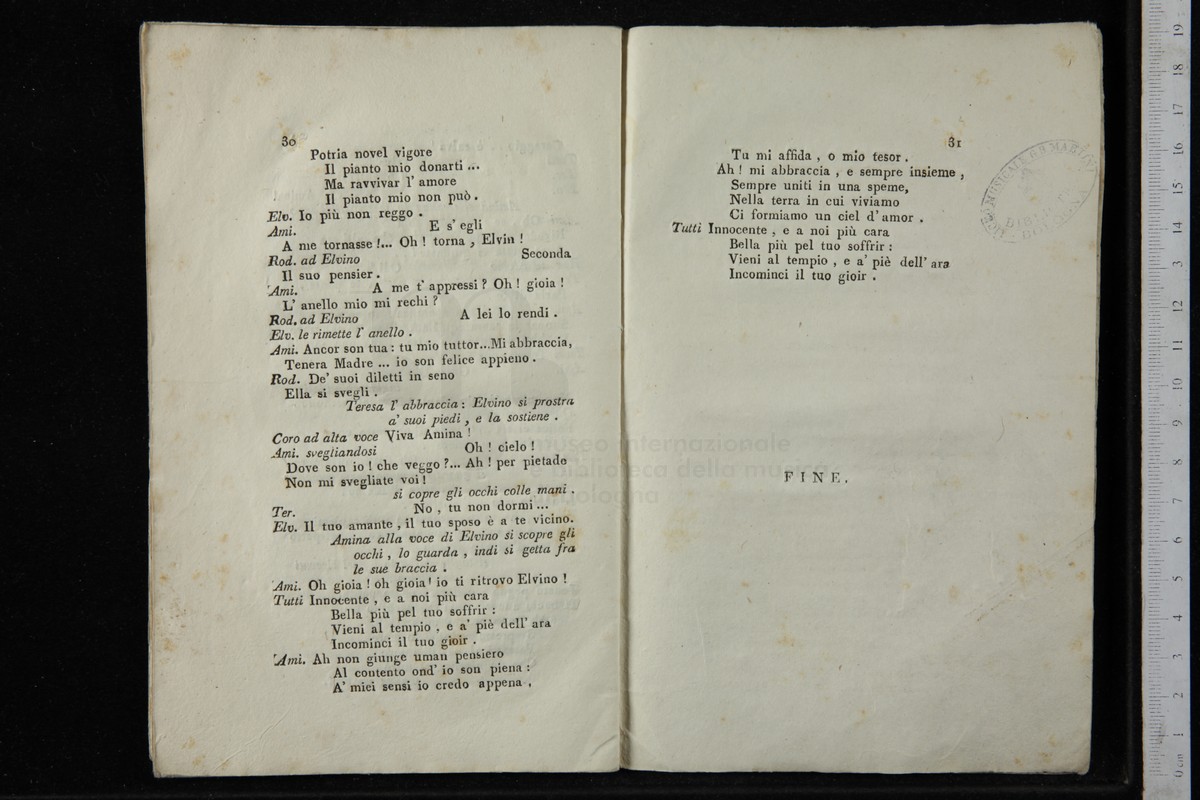 30
Potria novel vigore
Il pianto mio donarti ...
Ma ravvivar l' amore
Il pianto mio non può .
Elv. Io più non reggo .
Ami. E s' egli
A me tornasse !... Oh ! torna , Elvin !
Rod. ad Elvino Seconda
Il suo pensier .
Ami. A me t' appressi ? Oh ! gioia !
L' anello mio mi rechi ?
Rod. ad Elvino A lei lo rendi .
Elv. le rimette l' anello .
Ami. Ancor son tua : tu mio tuttor...Mi abbraccia,
Tenera Madre ... io son felice appieno .
Rod. De' suoi diletti in seno
Ella si svegli .
Teresa l' abbraccia : Elvino si prostra
a' suoi piedi , e la sostiene .
Coro ad alta voce Viva Amina !
Ami. svegliandosi Oh ! cielo !
Dove son io ! che veggo ?... Ah ! per pietade
Non mi svegliate voi !
si copre gli occhi colle mani .
Ter. No , tu non dormi ...
Elv. Il tuo amante , il tuo sposo è a te vicino.
Amina alla voce di Elvino si scopre gli
occhi , lo guarda , indi si getta fra
le sue braccia .
Ami. Oh gioia ! oh gioia ! io ti ritrovo Elvino !
Tutti Innocente , e a noi più cara
Bella più pel tuo soffrir :
Vieni al tempio , e a' piè dell' ara
Incominci il tuo gioir .
Ami. Ah non giunge uman pensiero
Al contento ond' io son piena :
A' miei sensi io credo appena ,
31
Tu mi affida , o mio tesor .
Ah ! mi abbraccia , e sempre insieme ,
Sempre uniti in una speme,
Nella terra in cui viviamo
Ci formiamo un ciel d' amor .
Tutti Innocente , e a noi più cara
Bella più pel tuo soffrir :
Vieni al tempio , e a' piè dell' ara
Incominci il tuo gioir .
FINE.
museo internazionale
e biblioteca della musica
di bologna
0 cm 1 2 3 4 5 6 7 8 9 10 11 12 13 14 15 16 17 18 19